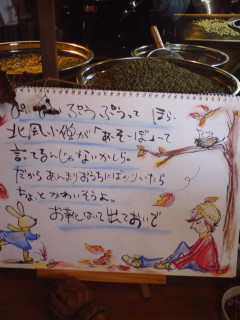 ぴゅーぴゅー ぷうぷうって ほら
北風小僧が「あそーぼ」って
言ってるんじゃないかしら。
だからあんまりおうちにばかりいたら
ちょっとかわいそうよ。
お靴はいて出ておいで